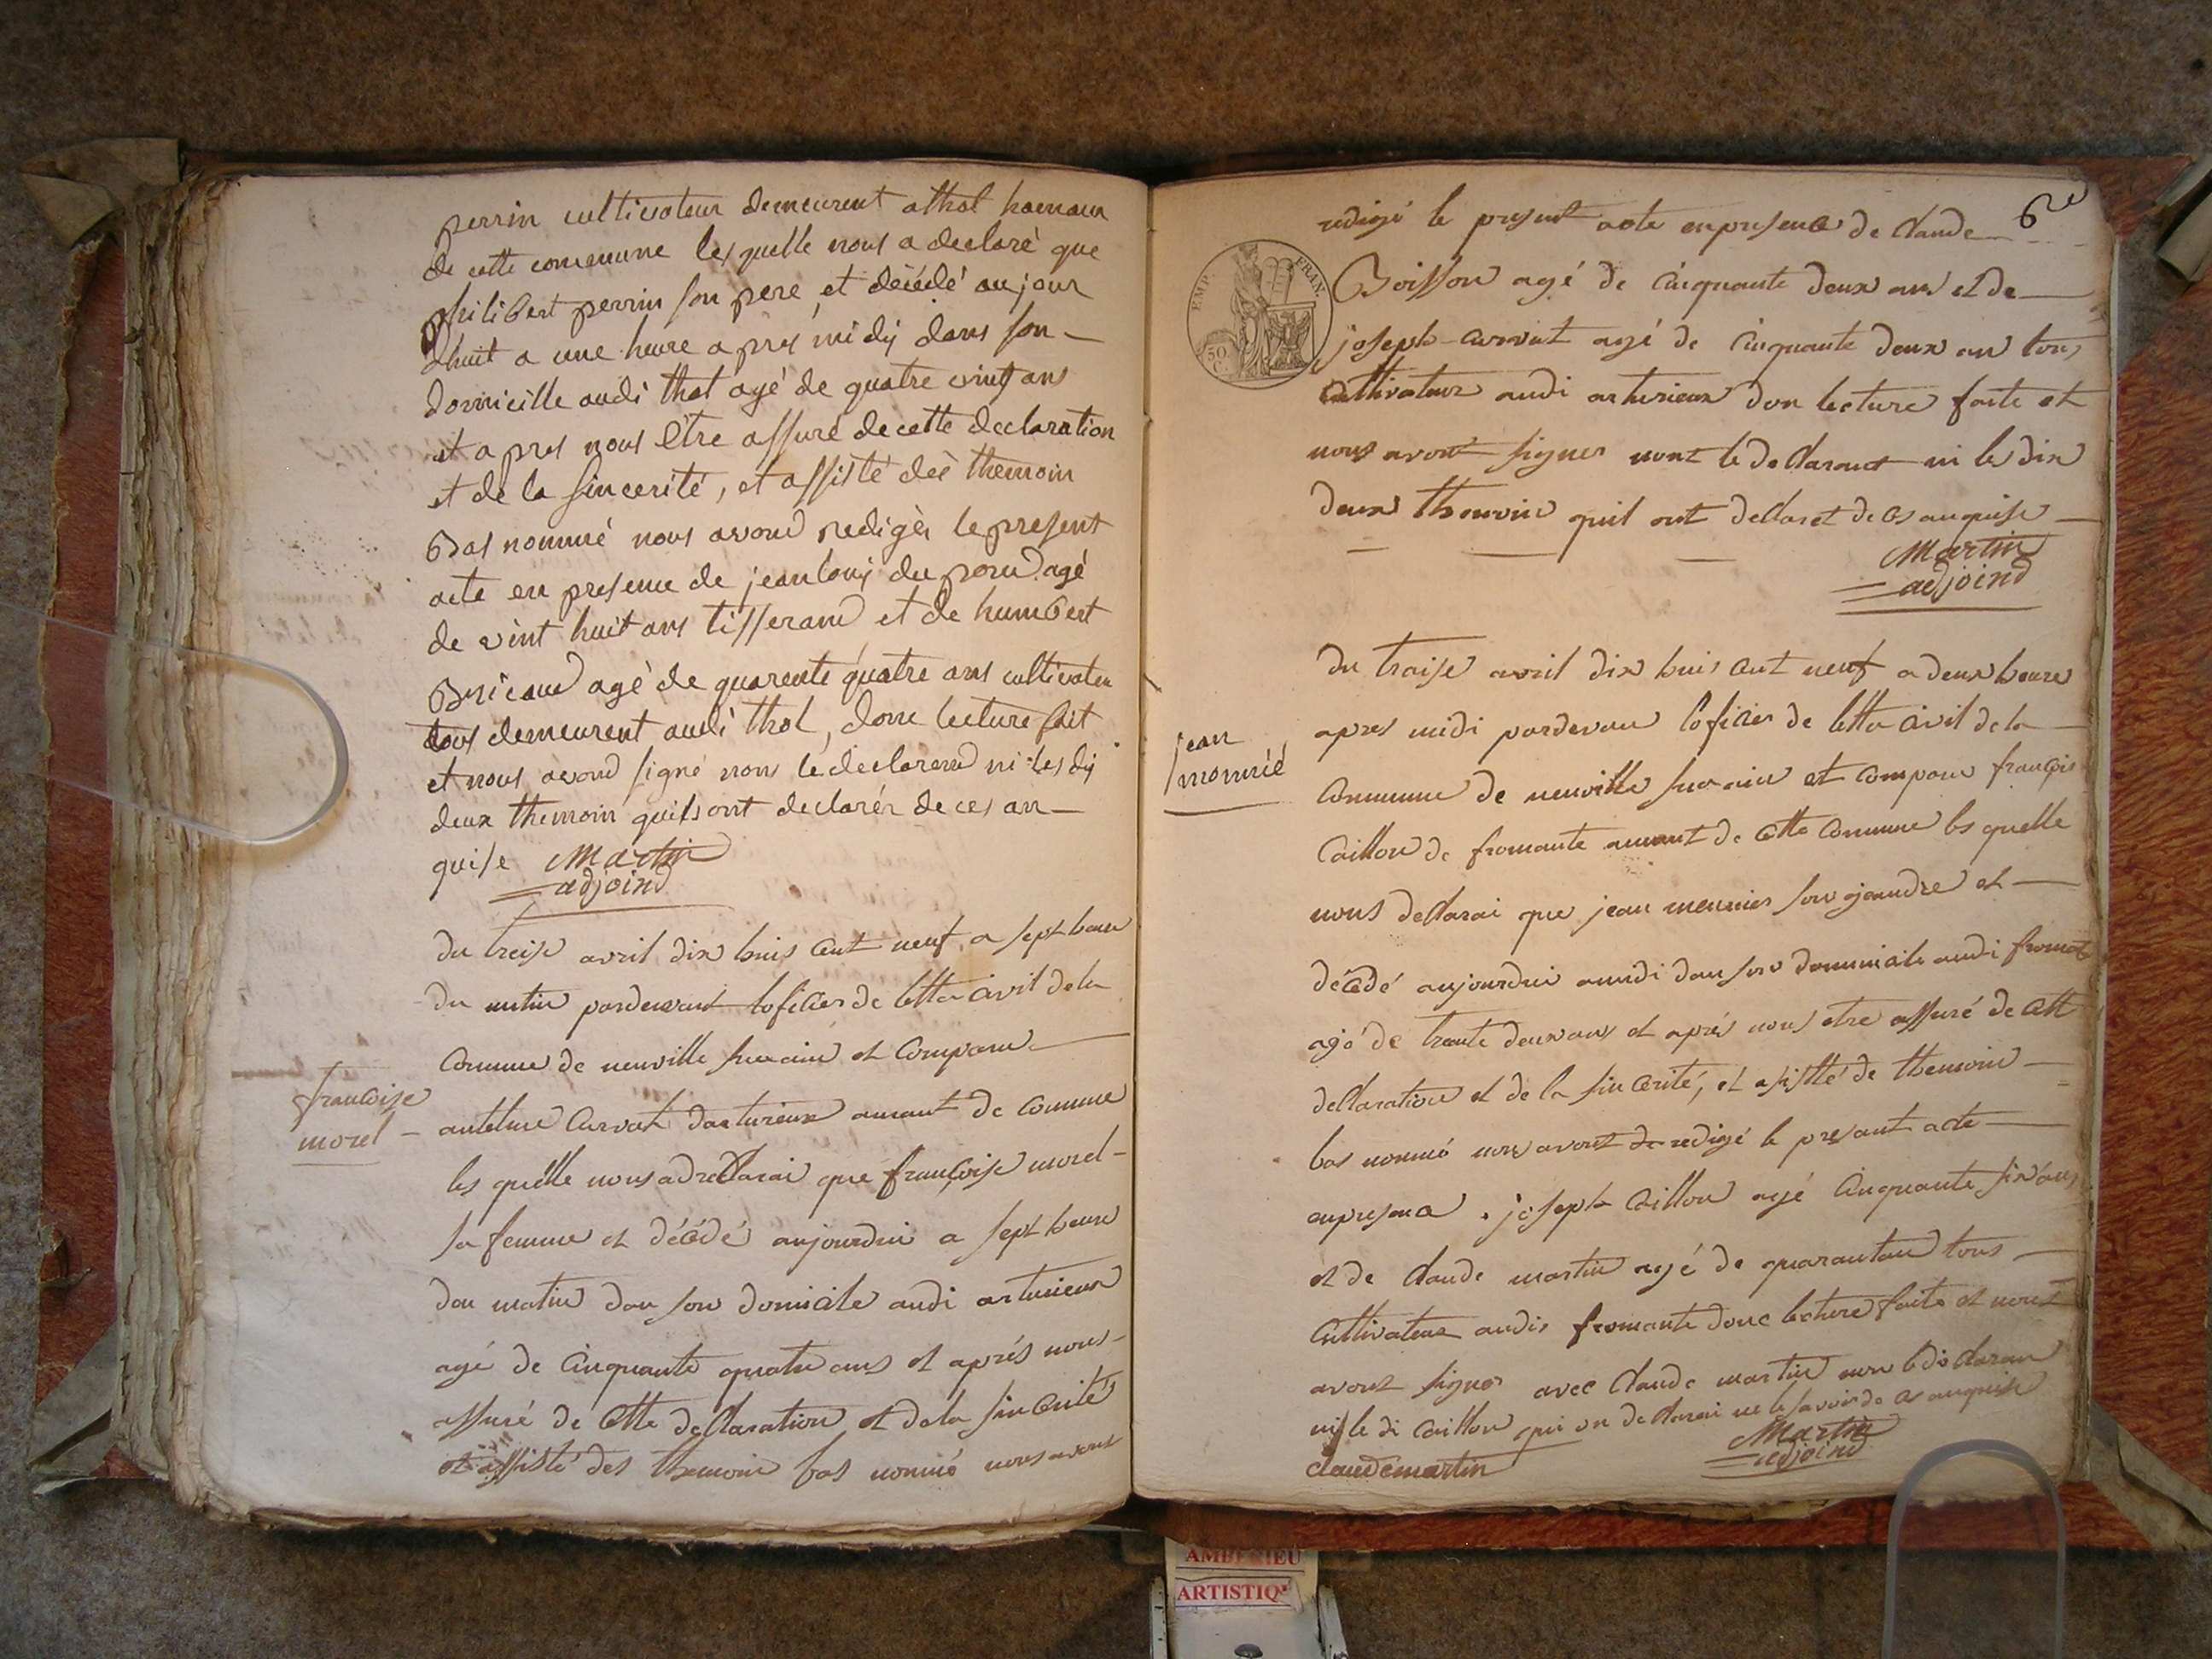 perrin cultivateur demeurent athol hameaux
de cette commune les quelle nous a declaré que
philibert perrin son pere et décédé aujour
dhuit a une heure apres midÿ dans son
domicille audi thol agé de quatre vint ans
et apres nous être assuré de cette declaration
et de la sincerité, et assisté des themoin
Bas nommé nous avond redigèr le present
acte en presence de jean louis du pond agé
de vint huit ans tisserand et de humbert
Bricaud agè de quarente quatre ans cultivateu
tous demeurent audi thol, donc lecture fait
et nous avond signé nons le declarend ni les dÿ
deux themoin quils ont declarér de ces an
quise Martin
adjoind
du treise avril dix huis cent neuf a sept heure
du matin pardevant lofficier de letta civil de la
Commune de neuville sur ain et Comparu
francoise
morel
antelme Carvat darturieux amant de Commune
les quelle nous a declarai que françoise morel
sa femme et décédé aujourdui a sept heure
dou matin dan son domicile audi arturieux
agé de Cinquante quatre ans et aprés nous
assuré de Cette declaration et de la sincerité
et assisté des themoin bas nommé nous avont
redigé le present acte en presence de Claude
Boisson agé de Cinquante deux ans et de
joseph Carvat agé de Cinquante deux an tous
Cultivateur audi arturieux don lecture faite et
nous avont signer nont le declarant ni les dix
deux themoin quil ont declaret de ces anquise
Martin
adjoind
EMP. FRAN.
50
C.
du traise avril dix huis cent neuf a deux heure
apres midi pardevan lofficier de letta civil de la
jean
monnié
Commune de neuville sur ain et Comparu françois
Caillon de fromante amant de Cette Commune les quelle
nous declarai que jean meunier son gjandre et
décédé aujourdui amidi dan son dommicile audi fromate
agé de trente deux ans et aprés nous etre assuré de Cett
declaration et de la sincerité, et asistté de themoin
bas nommé nous avont de redigé le presant acte
enpresence . joseph Caillon agé Cinquante six ans
et de Claude martin agé de quarantan tous
Cultivateur audis fromante donc lecture faite et nous
avont signer avec Claude martin non le declaran
nis le di Caillon qui on declarai ne le savoir de ces anquise
claudemartin
Martin
adjoind
AMBERIEU
ARTISTIQ